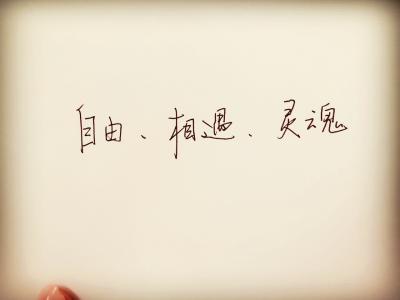 自由、相遇、灵魂